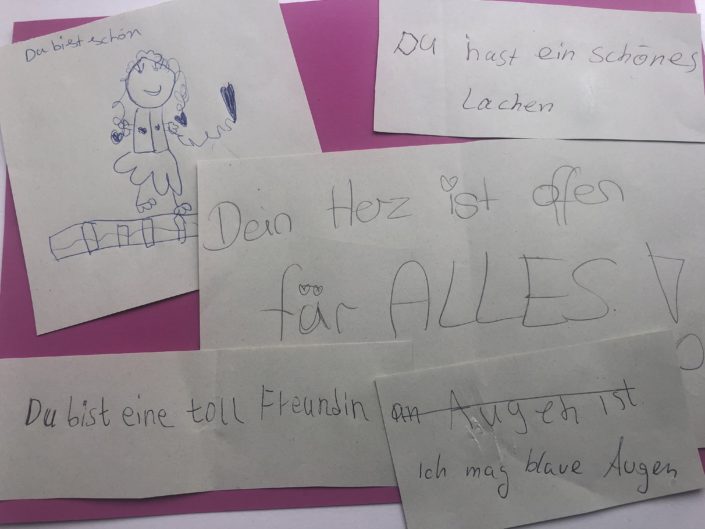 Du bist schön
Du hast ein schönes
Lachen
Dein Herz ist offen
für ALLES!
Du bist eine toll Freundin
an Augen ist
Ich mag blaue Augen